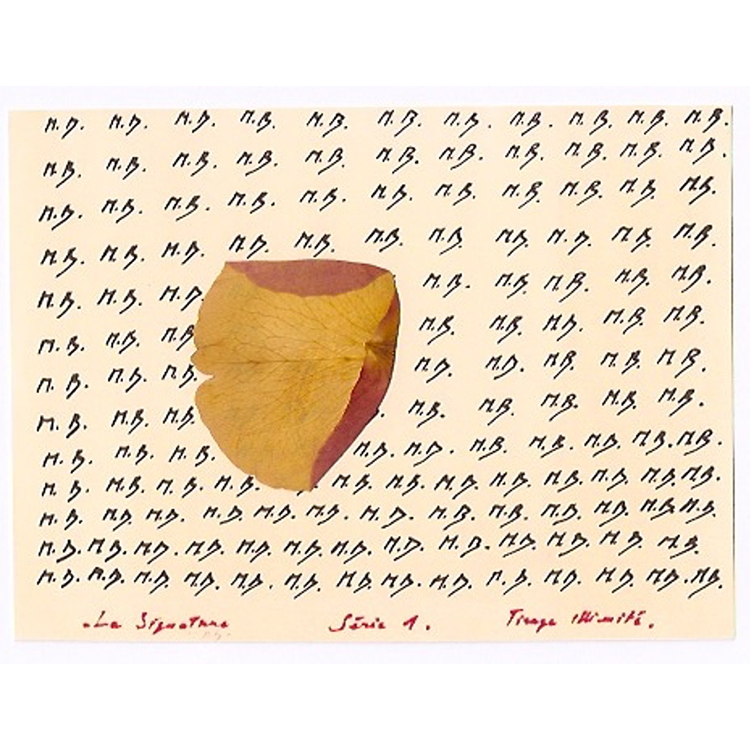 M.B. M.B. M.B. M.B. M.B. M.B. M.B. M.B. M.B. M.B. M.B.
M.B. M.B. M.B. M.B. M.B. M.B. M.B. M.B. M.B. M.B. M.B.
M.B. M.B. M.B. M.B. M.B. M.B. M.B. M.B. M.B. M.B. M.B.
M.B. M.B. M.B. M.B. M.B. M.B. M.B. M.B. M.B. M.B. M.B.
M.B. M.B. M.B. M.B. M.B. M.B. M.B. M.B.
M.B. M.B. M.B. M.B. M.B. M.B. M.B. M.B.
M.B. M.B. M.B. M.B. M.B. M.B. M.B. M.B.
M.B. M.B. M.B. M.B. M.B. M.B. M.B. M.B.
M.B. M.B. M.B. M.B. M.B. M.B. M.B. M.B. M.B. M.B.
M.B. M.B. M.B. M.B. M.B. M.B. M.B. M.B. M.B. M.B. M.B. M.B. M.B.
M.B. M.B. M.B. M.B. M.B. M.B. M.B. M.B. M.B. M.B. M.B. M.B. M.B.
M.B. M.B. M.B. M.B. M.B. M.B. M.B. M.B. M.B. M.B. M.B. M.B. M.B.
M.B. M.B. M.B. M.B. M.B. M.B. M.B. M.B. M.B. M.B. M.B. M.B. M.B. M.B.
La Signature Série 1. Tirage illimité.